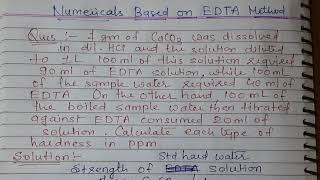 Numericals Based on EDTA Method
Ques :- 1 gm of CaCO3 was dissolved
in dil. HCl and the solution diluted
to 1L. 100 ml of this solution required
90 ml of EDTA solution, while 100 ml
of the sample water required 40 ml of
EDTA. On the other hand 100 ml of
the boiled sample water then titrated
against EDTA consumed 20 ml of
solution. Calculate each type of
hardness in ppm.
Solution :- Std hard water
Strength of EDTA solution